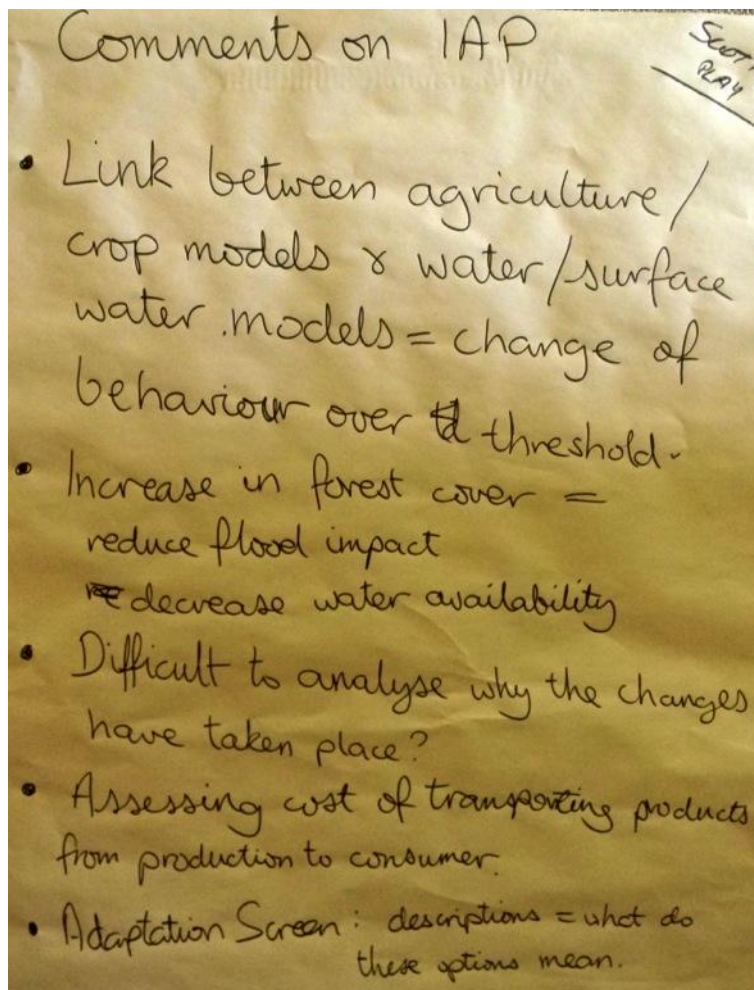 Comments on IAP
SCOT
PLAY
• Link between agriculture/
crop models & water/surface
water models = change of
behaviour over threshold.
• Increase in forest cover =
reduce flood impact
decrease water availability
• Difficult to analyse why the changes
have taken place?
• Assessing cost of transporting products
from production to consumer.
• Adaptation Screen: descriptions = what do
these options mean.